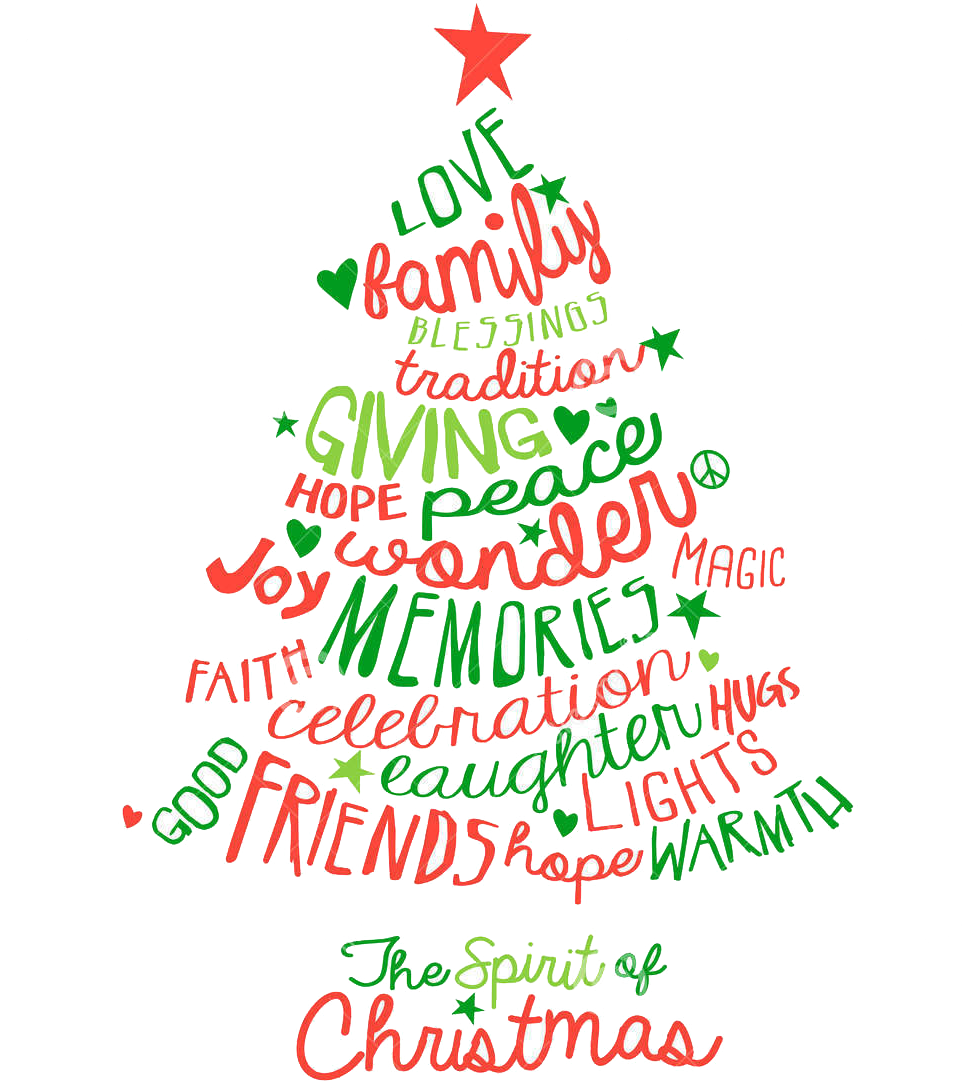 LOVE
family
BLESSINGS
tradition
GIVING
HOPE peace
Joy wonder MAGIC
MEMORIES
FAITH
celebration HUGS
GOOD laughter LIGHTS
FRIENDS hope WARMTH
The Spirit of
Christmas